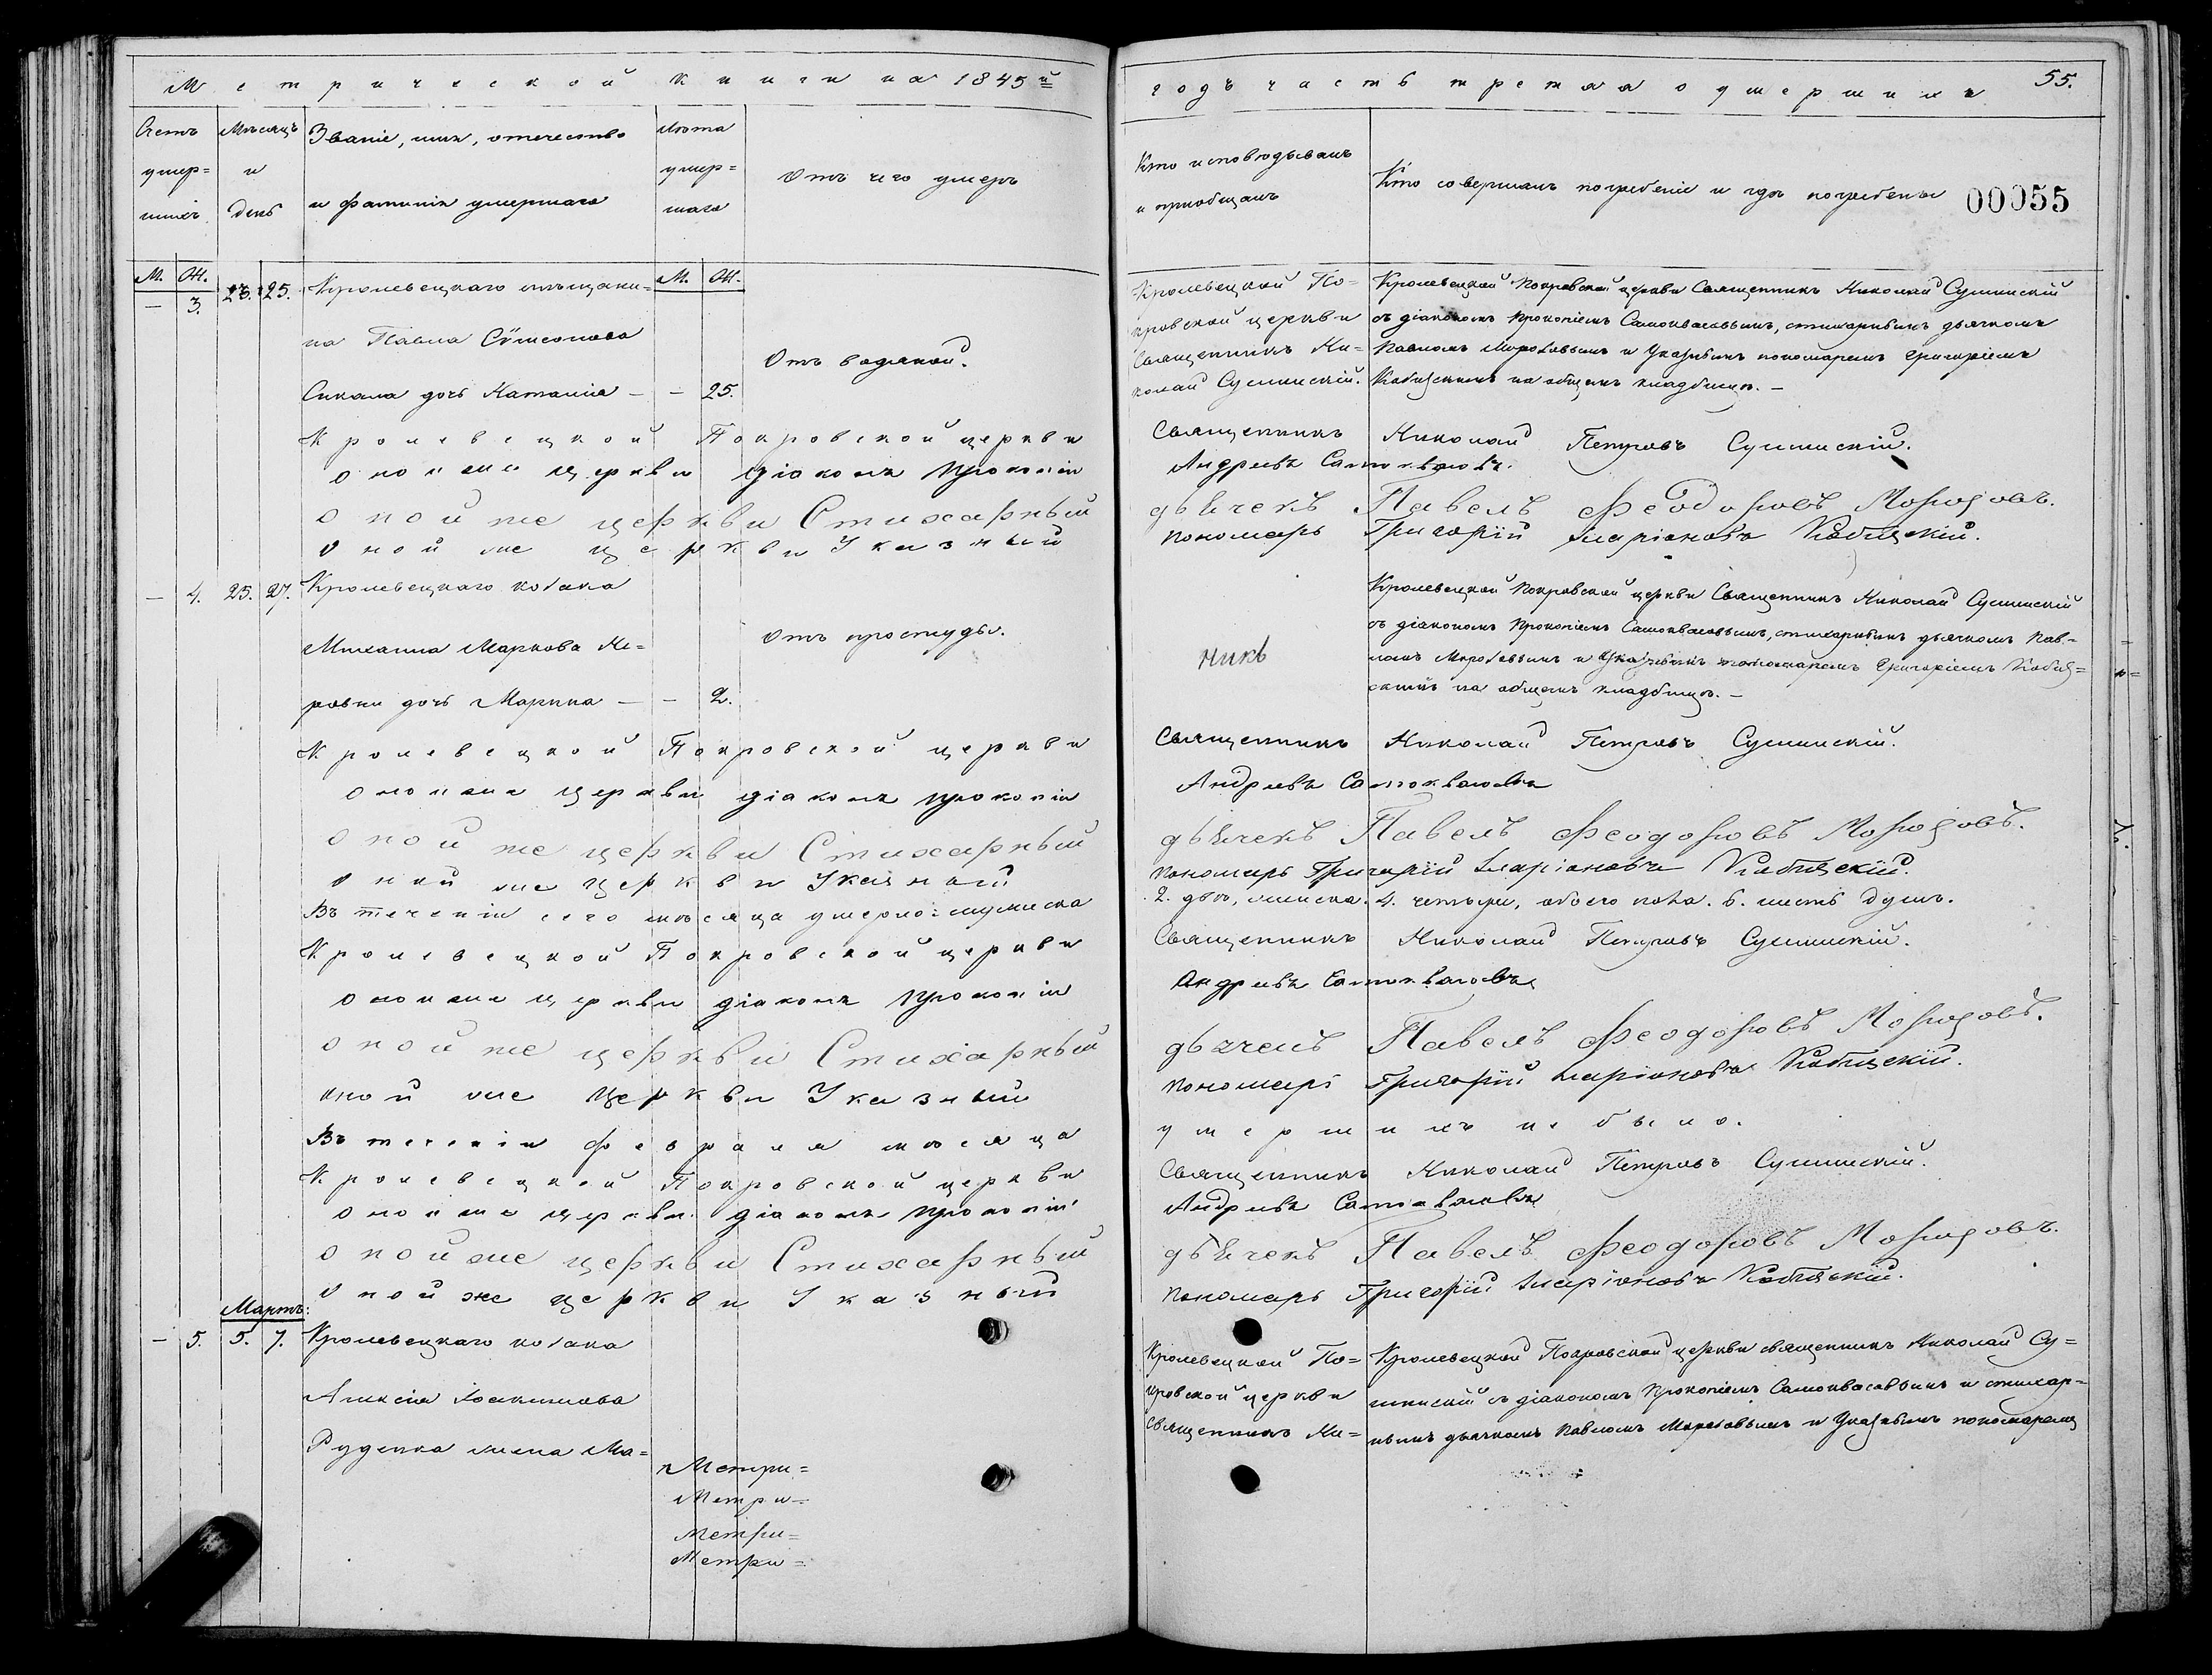 Метрической книги на 1845й
Счетъ умер=шихъ
Мѣсяцъ и день
Званіе, имя, отечество и фамилія умершаго
Лѣта умер=шаго
Отъ чего умеръ
М. Ж.
М. Ж.
— 3. 23. 25. Кролевецкаго мѣщани=
на Павла Сѵмеонова
дочь Наталія — — 25.
Отъ водяной.
Кролевецкой Покровской церкви
оной же церкви діаконъ Прокопій
оной же церкви Стихарный
оной же церкви Указный
— 4. 25. 27. Кролевецкаго козака
Михаила Маркова Не=
ровни дочь Марина — — 2.
Отъ простуды.
Кролевецкой Покровской церкви
оной же церкви діаконъ Прокопій
оной же церкви Стихарный
оной же церкви Указный
Въ теченіи сего мѣсяца умерло: мужеска
Кролевецкой Покровской церкви
оной же церкви діаконъ Прокопій
оной же церкви Стихарный
оной же церкви Указный
Въ теченіи февраля мѣсяца
Кролевецкой Покровской церкви
оной же церкви діаконъ Прокопій
оной же церкви Стихарный
оной же церкви Указный
Мартъ:
— 5. 5. 7. Кролевецкаго козака
Алексія Іоакимова
Руденка жена Ма=
Метри=
Метри=
Метри=
Метри=
годъ часть третая о умершихъ 55.
Кто исповѣдывалъ и пріобщалъ
Кто совершалъ погребеніе и гдѣ погребены
00055
Кролевецкой По=
кровской церкви
Священникъ Ни=
колай Сушинскій.
Кролевецкой Покровской церкви Священникъ Николай Сушинскій
съ діакономъ Прокопіемъ Самоквасовымъ, стихарнымъ дьячкомъ
Павломъ Морозовымъ и Указнымъ пономаремъ Григоріемъ
Кобизскимъ на общемъ кладбищѣ. —
Священникъ Николай Петровъ Сушинскій.
Андреевъ Самоквасовъ.
дьячекъ Павелъ Феодоровъ Морозовъ.
пономарь Григорій Иларіоновъ Кобизскій.
Кролевецкой Покровской церкви Священникъ Николай Сушинскій
съ діакономъ Прокопіемъ Самоквасовымъ, стихарнымъ дьячкомъ Пав=
ломъ Морозовымъ и Указнымъ пономаремъ Григоріемъ Кобиз=
скимъ на общемъ кладбищѣ. —
Священникъ Николай Петровъ Сушинскій.
Андреевъ Самоквасовъ
дьячекъ Павелъ Феодоровъ Морозовъ.
пономарь Григорій Иларіоновъ Кобизскій.
2. двѣ, женска. 4. четыри, обоего пола. 6. шесть душъ.
Священникъ Николай Петровъ Сушинскій.
Андреевъ Самоквасовъ
дьячекъ Павелъ Феодоровъ Морозовъ.
пономарь Григорій Иларіоновъ Кобизскій.
умершихъ не было.
Священникъ Николай Петровъ Сушинскій.
Андреевъ Самоквасовъ
дьячекъ Павелъ Феодоровъ Морозовъ.
пономарь Григорій Иларіоновъ Кобизскій.
Кролевецкой По=
кровской церкви
Священникъ Ни=
Кролевецкой Покровской церкви священникъ Николай Су=
шинскій съ діакономъ Прокопіемъ Самоквасовымъ и стихар=
нымъ дьячкомъ Павломъ Морозовымъ и Указнымъ пономаремъ